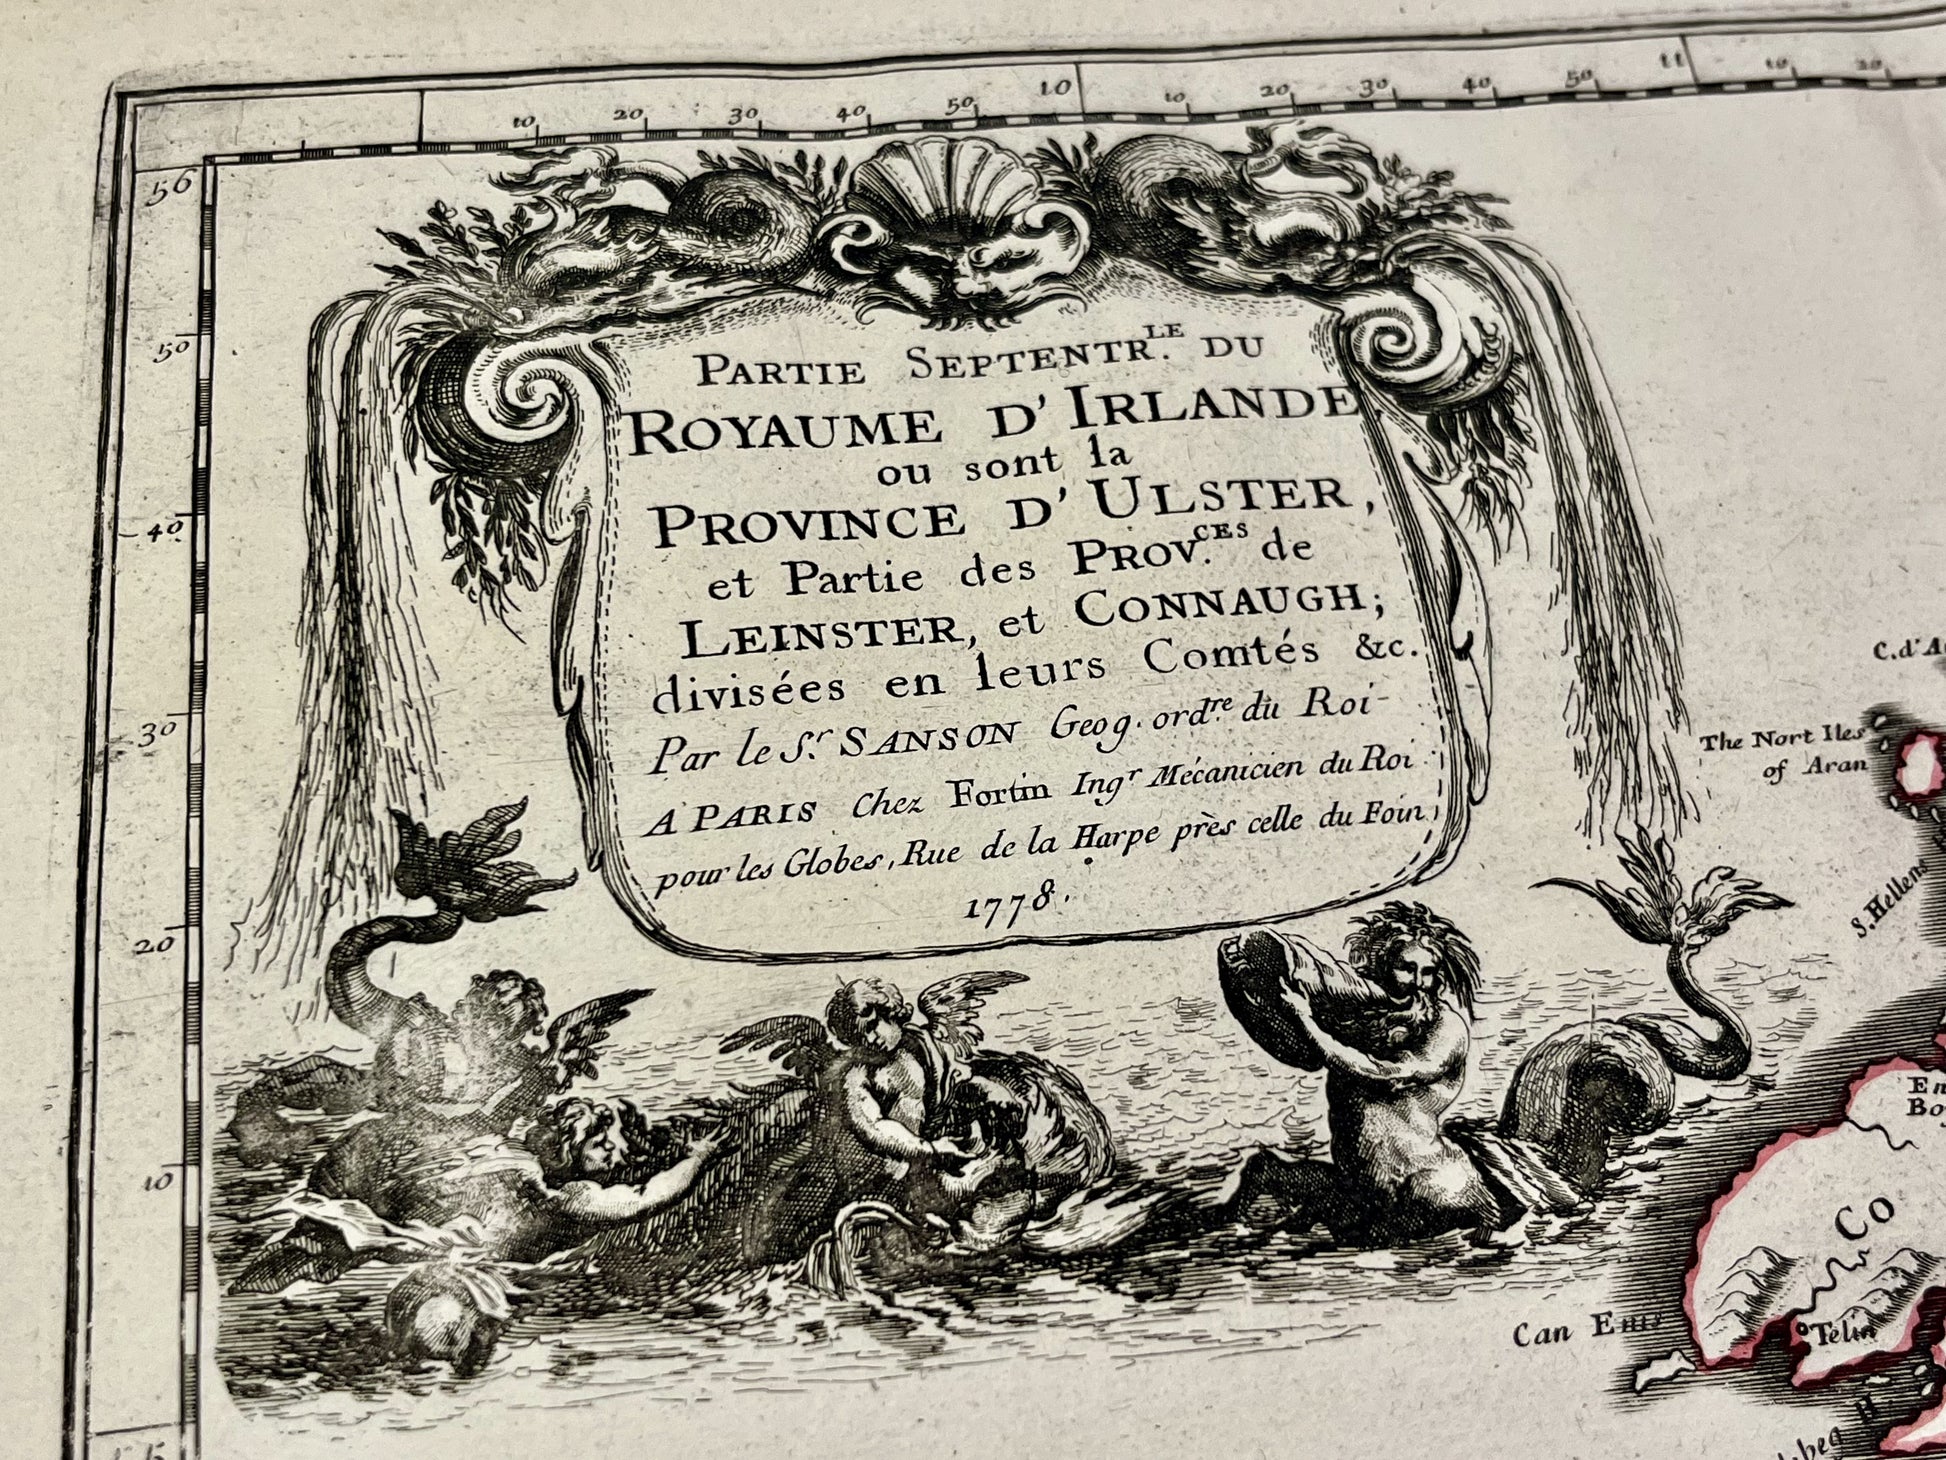 10 20 30 40 50 10 10 20 30 40 50 11 10 20
56
50
40
30
20
10
PARTIE SEPTENTR.LE DU
ROYAUME D'IRLANDE,
ou sont la
PROVINCE D'ULSTER,
et Partie des PROV.CES de
LEINSTER, et CONNAUGH;
divisées en leurs Comtés &c.
Par le Sr. SANSON Geog. ordre. du Roi
A PARIS Chez Fortin Ingr Mécanicien du Roi
pour les Globes, Rue de la Harpe près celle du Foin,
1778.
The Nort Iles
of Aran
S. Hellens
Co
Can
Telin